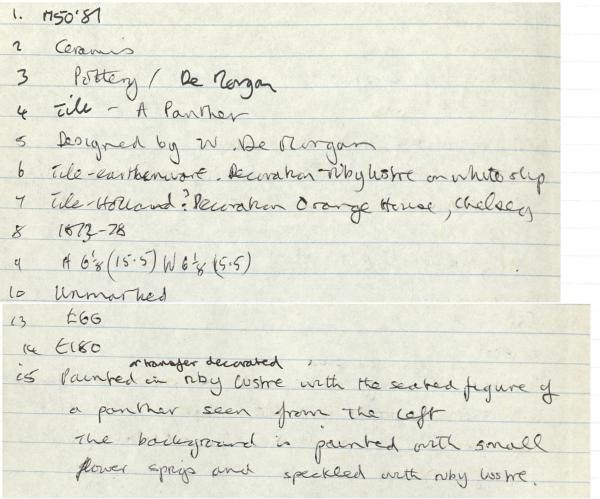 1. M50'81
2 Ceramics
3 Pottery / De Morgan
4 Tile - A Panther
5 Designed by W. De Morgan
6 Tile-earthenware. Decoration-ruby lustre on white slip
7 Tile-Holland? Decoration Orange House, Chelsea
8 1872-78
9 H 6⅛ (15.5) W 6⅛ (15.5)
10 Unmarked
13 £66
14 £180
or transfer decorated
15 Painted in ruby lustre with the seated figure of
a panther seen from the left
The background is painted with small
flower sprigs and speckled with ruby lustre.